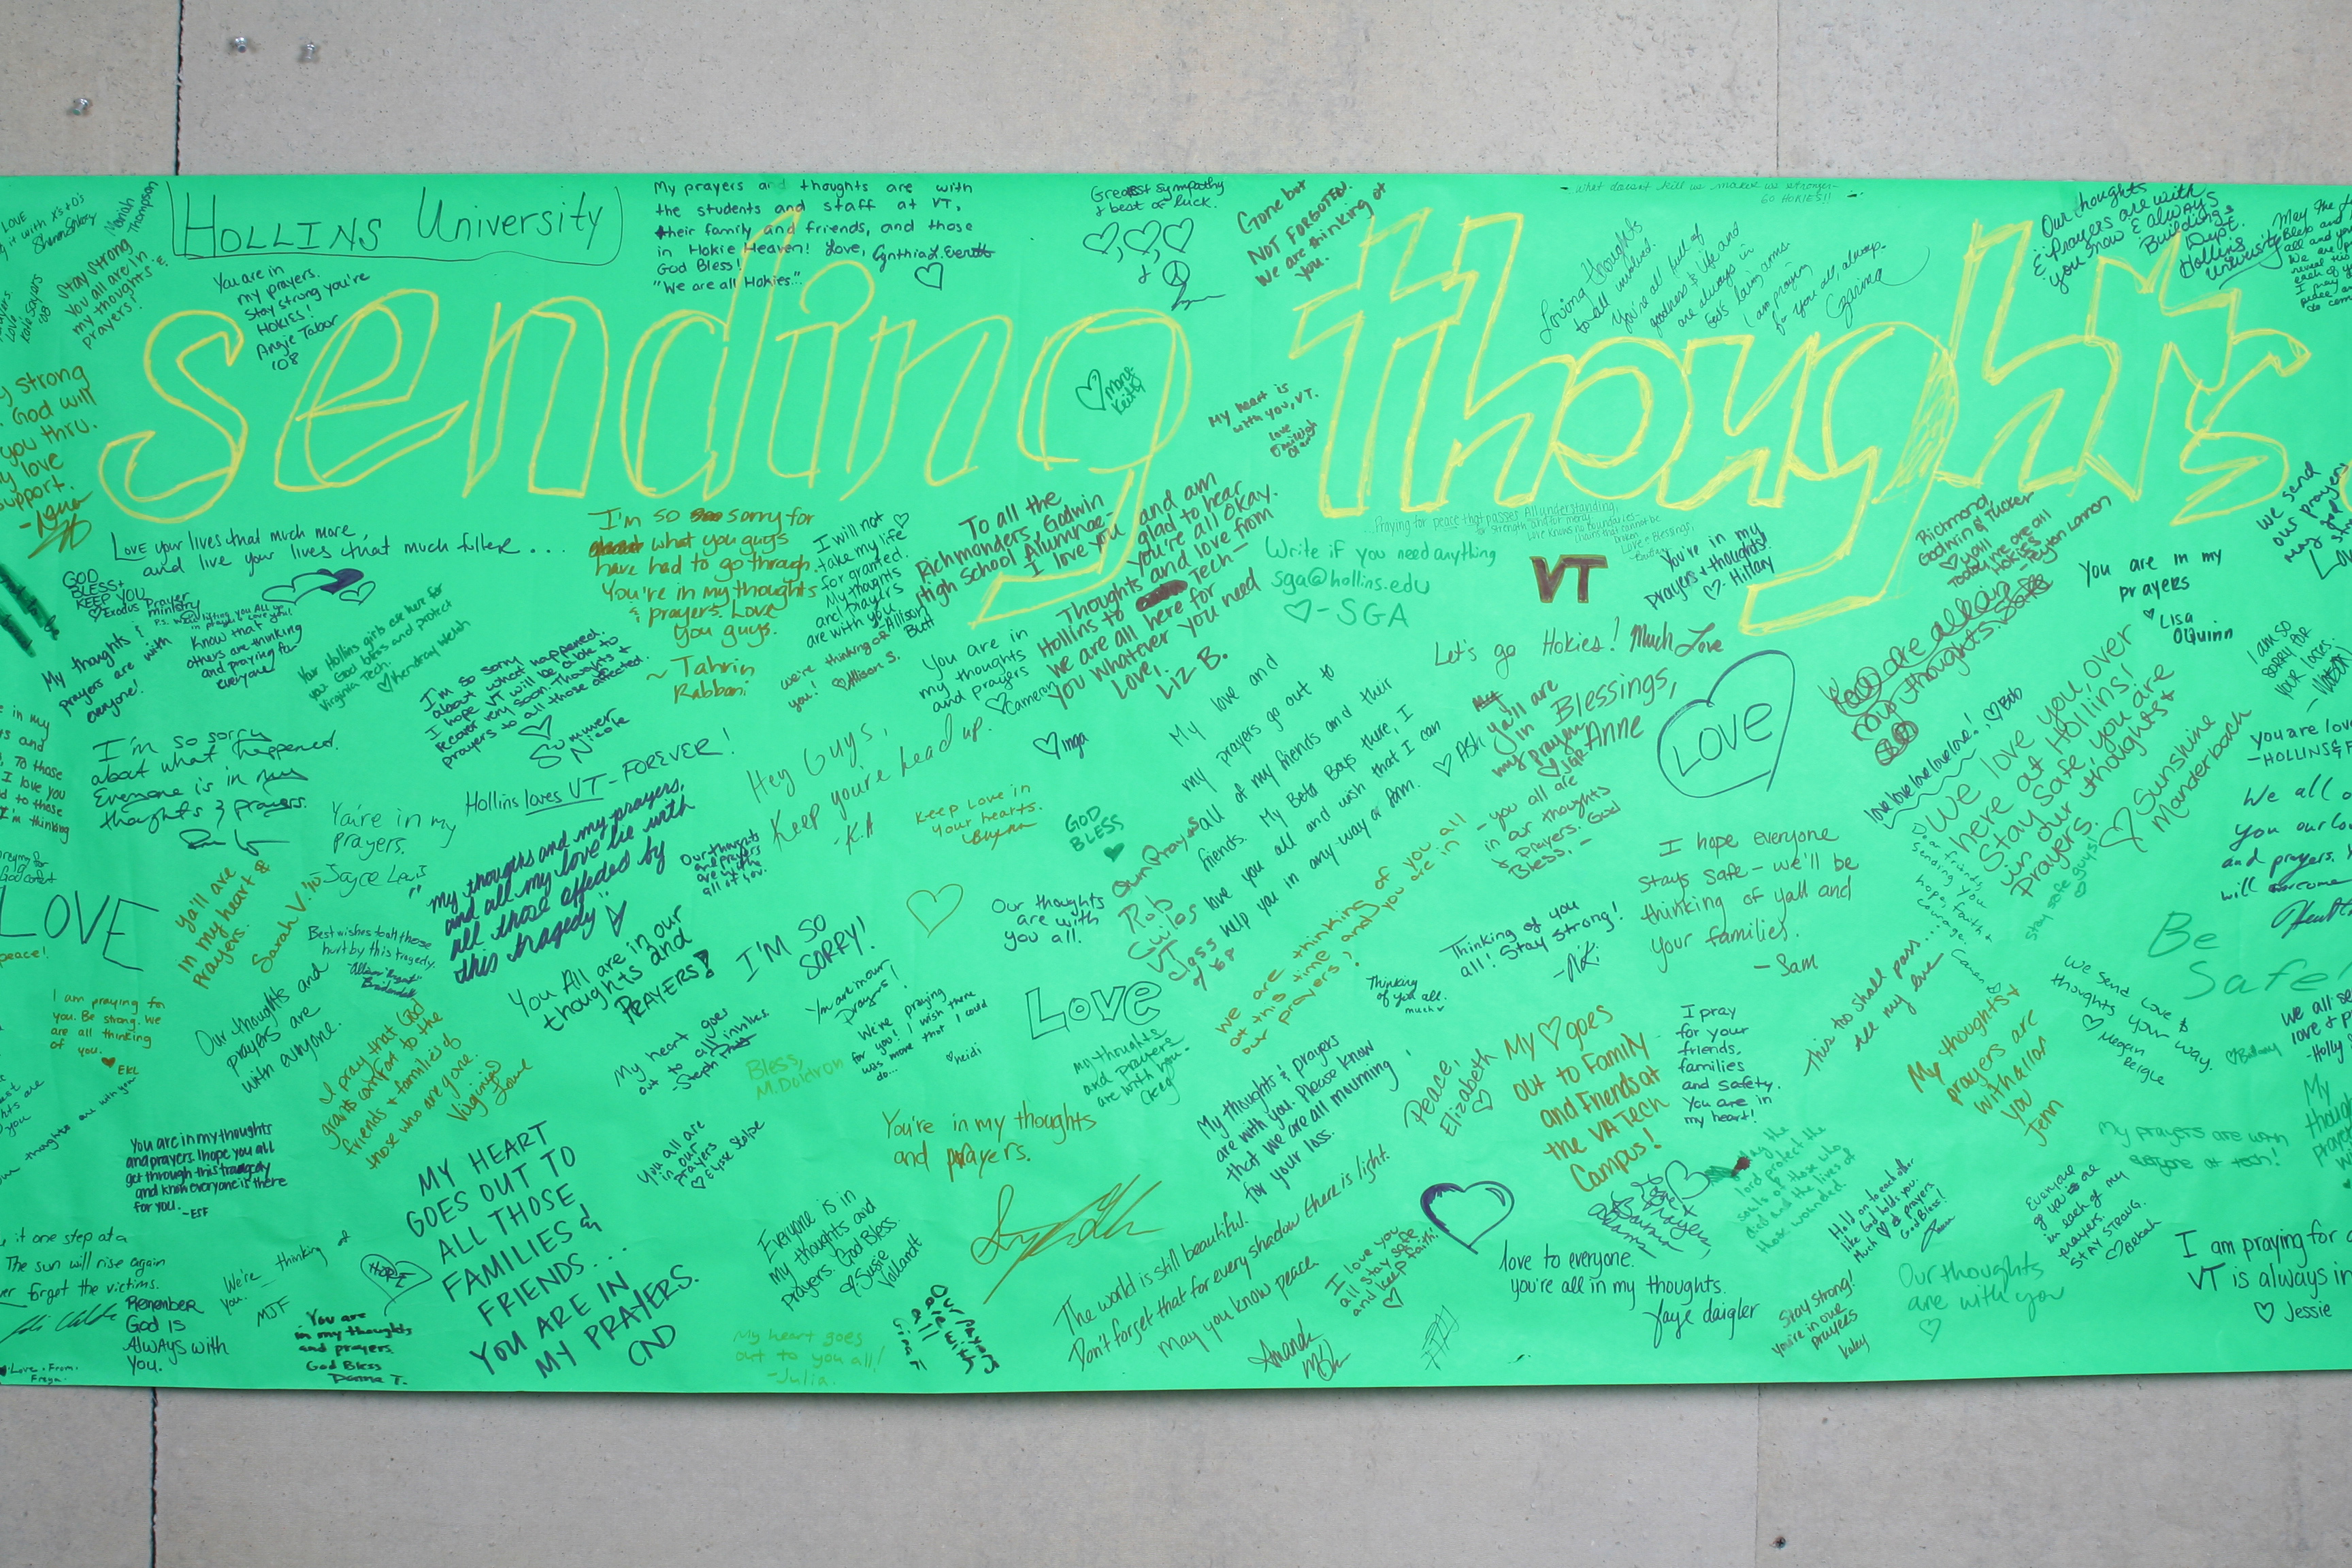 HOLLINS University
sending thoughts
My prayers and thoughts are with
the students and staff at VT,
their family and friends, and those
in Hokie Heaven! Love, Cynthia L. Everett
God Bless!
"We are all Hokies..."
Greatest sympathy
& best of luck.
Gone but
NOT FORGOTTEN.
We are thinking of
you.
- What doesn't kill us makes us stronger -
GO HOKIES!!
Loving thoughts
to all involved.
You're all full of
goodness & life and
are always in
God's loving arms.
I am praying
for you all, always.
Our thoughts
& Prayers are with
you now & always
Buildings
Dept.
Hollins
University
Stay strong
You all are in
my thoughts &
prayers!
Mariah
Thompson
Kate Sayers
'08
You are in
my prayers.
Stay strong you're
HOKIES!
Angie Tabor
'08
Mary
Keith
My heart is
with you, VT.
Love
y strong
God will
you thru.
y love
support.
Love your lives that much more,
and live your lives that much fuller...
I'm so sorry for
what you guys
have had to go through.
You're in my thoughts
& prayers. Love
you guys.
~ Tahrin
Rabbani
I will not
take my life
for granted.
My thoughts
and prayers
are with you
Allison
Butt
we're thinking of
you!
Allison S.
To all the
Richmonders, Godwin
High School Alumnae-
I love you and am
glad to hear
you're all okay.
Thoughts and love from
Hollins to Tech-
we are all here for
you whatever you need
Love,
Liz B.
Praying for peace that passes All understanding,
Write if you need anything
sga@hollins.edu
-SGA
VT
You're in my
prayers & thoughts!
Hillary
Richmond
Godwin & Tucker
yall!
Today we are all
Hokies
-Peyton Lannon
You are in my
prayers
Lisa
O'Quinn
GOD
BLESS +
KEEP YOU
Exodus Prayer
ministry
My thoughts &
prayers are with
everyone!
Know that
others are thinking
and praying for
everyone
Your Hollins girls are here for
you. God bless and protect
Virginia Tech.
Kendreal Welch
I'm so sorry
about what happened.
I hope VT will be able to
recover very soon. Thoughts &
prayers to all those affected.
Summer
Nicole
You are in
my thoughts
and prayers
Cameron
Let's go Hokies! Much Love
ya'll are
in
my prayers
Blessings,
Anne
LOVE
You are all in
my thoughts. Be safe
love love love love!, Bob
We love you over
here at Hollins!
Stay safe you are
in our thoughts &
prayers.
Sunshine
Manderback
I am so
sorry for
your loss.
I'm so sorry
about what happened.
Everyone is in my
thoughts & prayers.
Hollins loves VT-FOREVER!
Hey Guys,
Keep you're head up.
-K.A
Inga
Keep Love in
your hearts.
GOD
BLESS
My love and
my prayers go out to
all of my friends and their
friends. My Beta Boys there, I
love you all and wish that I can
help you in any way or form.
Ash
Our Prayers
Rob
Guilas
VT
Class
of '68
- you all are
in our thoughts
& prayers. God
Bless. -
I hope everyone
stays safe - we'll be
thinking of yall and
your families.
-Sam
You're in my
prayers.
-Joyce Lewis
my thoughts and my prayers,
and all my love lie with
all those affected by
this tragedy
Our thoughts
and prayers
are with
all of you.
LOVE
peace!
ya'll are
in my heart &
Prayers.
Sarah V. '10
Best wishes to all those
hurt by this tragedy.
You All are in our
thoughts and
PRAYERS!
I'M SO
SORRY!
Our thoughts
are with
you all.
We are thinking of you all
at this time and you are in
our prayers,
Thinking of you
all! Stay strong!
-N.K.
Dear friends,
Sending you
hope, faith &
courage.
Stay safe guys!
Be
Safe
I am praying for
you. Be strong. We
are all thinking
of you.
EKL
Our thoughts and
prayers are
with everyone.
I pray that God
grants comfort to the
friends & families of
those who are gone.
Virginia
Lowe
My heart goes
out to all involved.
-Steph
You are in our
Prayers!
We're praying
for you! I wish there
was more that I could
do...
Heidi
Bless,
M. Doldron
Love
my thoughts
and Prayers
are with you-
Thinking
of you all.
much
This too shall pass...
all my love
We send love &
thoughts your way.
Megan
Reigle
My thoughts &
prayers are
with all of
you
Jenn
My prayers are with
everyone at tech!
You are in my thoughts
and prayers. I hope you all
get through this tragedy
and know everyone is there
for you.
-ESF
MY HEART
GOES OUT TO
ALL THOSE
FAMILIES &
FRIENDS...
YOU ARE IN
MY PRAYERS.
CND
you all are
in our
prayers
Elyse Stolpe
You're in my thoughts
and prayers.
My thoughts & prayers
are with you. Please know
that we are all mourning
for your loss.
Peace,
Elizabeth
My goes
out to Family
and Friends at
the VA Tech
Campus!
I pray
for your
friends,
families
and safety.
You are in
my heart!
May the
lord protect the
souls of those who
died and the lives of
those wounded.
Hold on to each other
like God holds you.
Much & prayers
God Bless!
Everyone
of you are
in each of my
prayers.
STAY STRONG.
Bekah
it one step at a
The sun will rise again
forget the victims.
Remember
God is
Always with
you.
Love, From,
Freya
We're thinking of
you.
MJF
HOPE
You are
in my thoughts
and prayers.
God Bless
Donna T.
Everyone is in
my thoughts and
prayers. God Bless.
Susie
Vollandt
My heart goes
out to you all!
-Julia.
The world is still beautiful.
Don't forget that for every shadow there is light.
May you know peace
Amanda
I love you
all stay safe
and keep faith!
love to everyone.
you're all in my thoughts.
Yaye daigler
Stay Strong!
you're in our
Prayers
Kaley
Our thoughts
are with you
I am praying for
VT is always in
Jessie